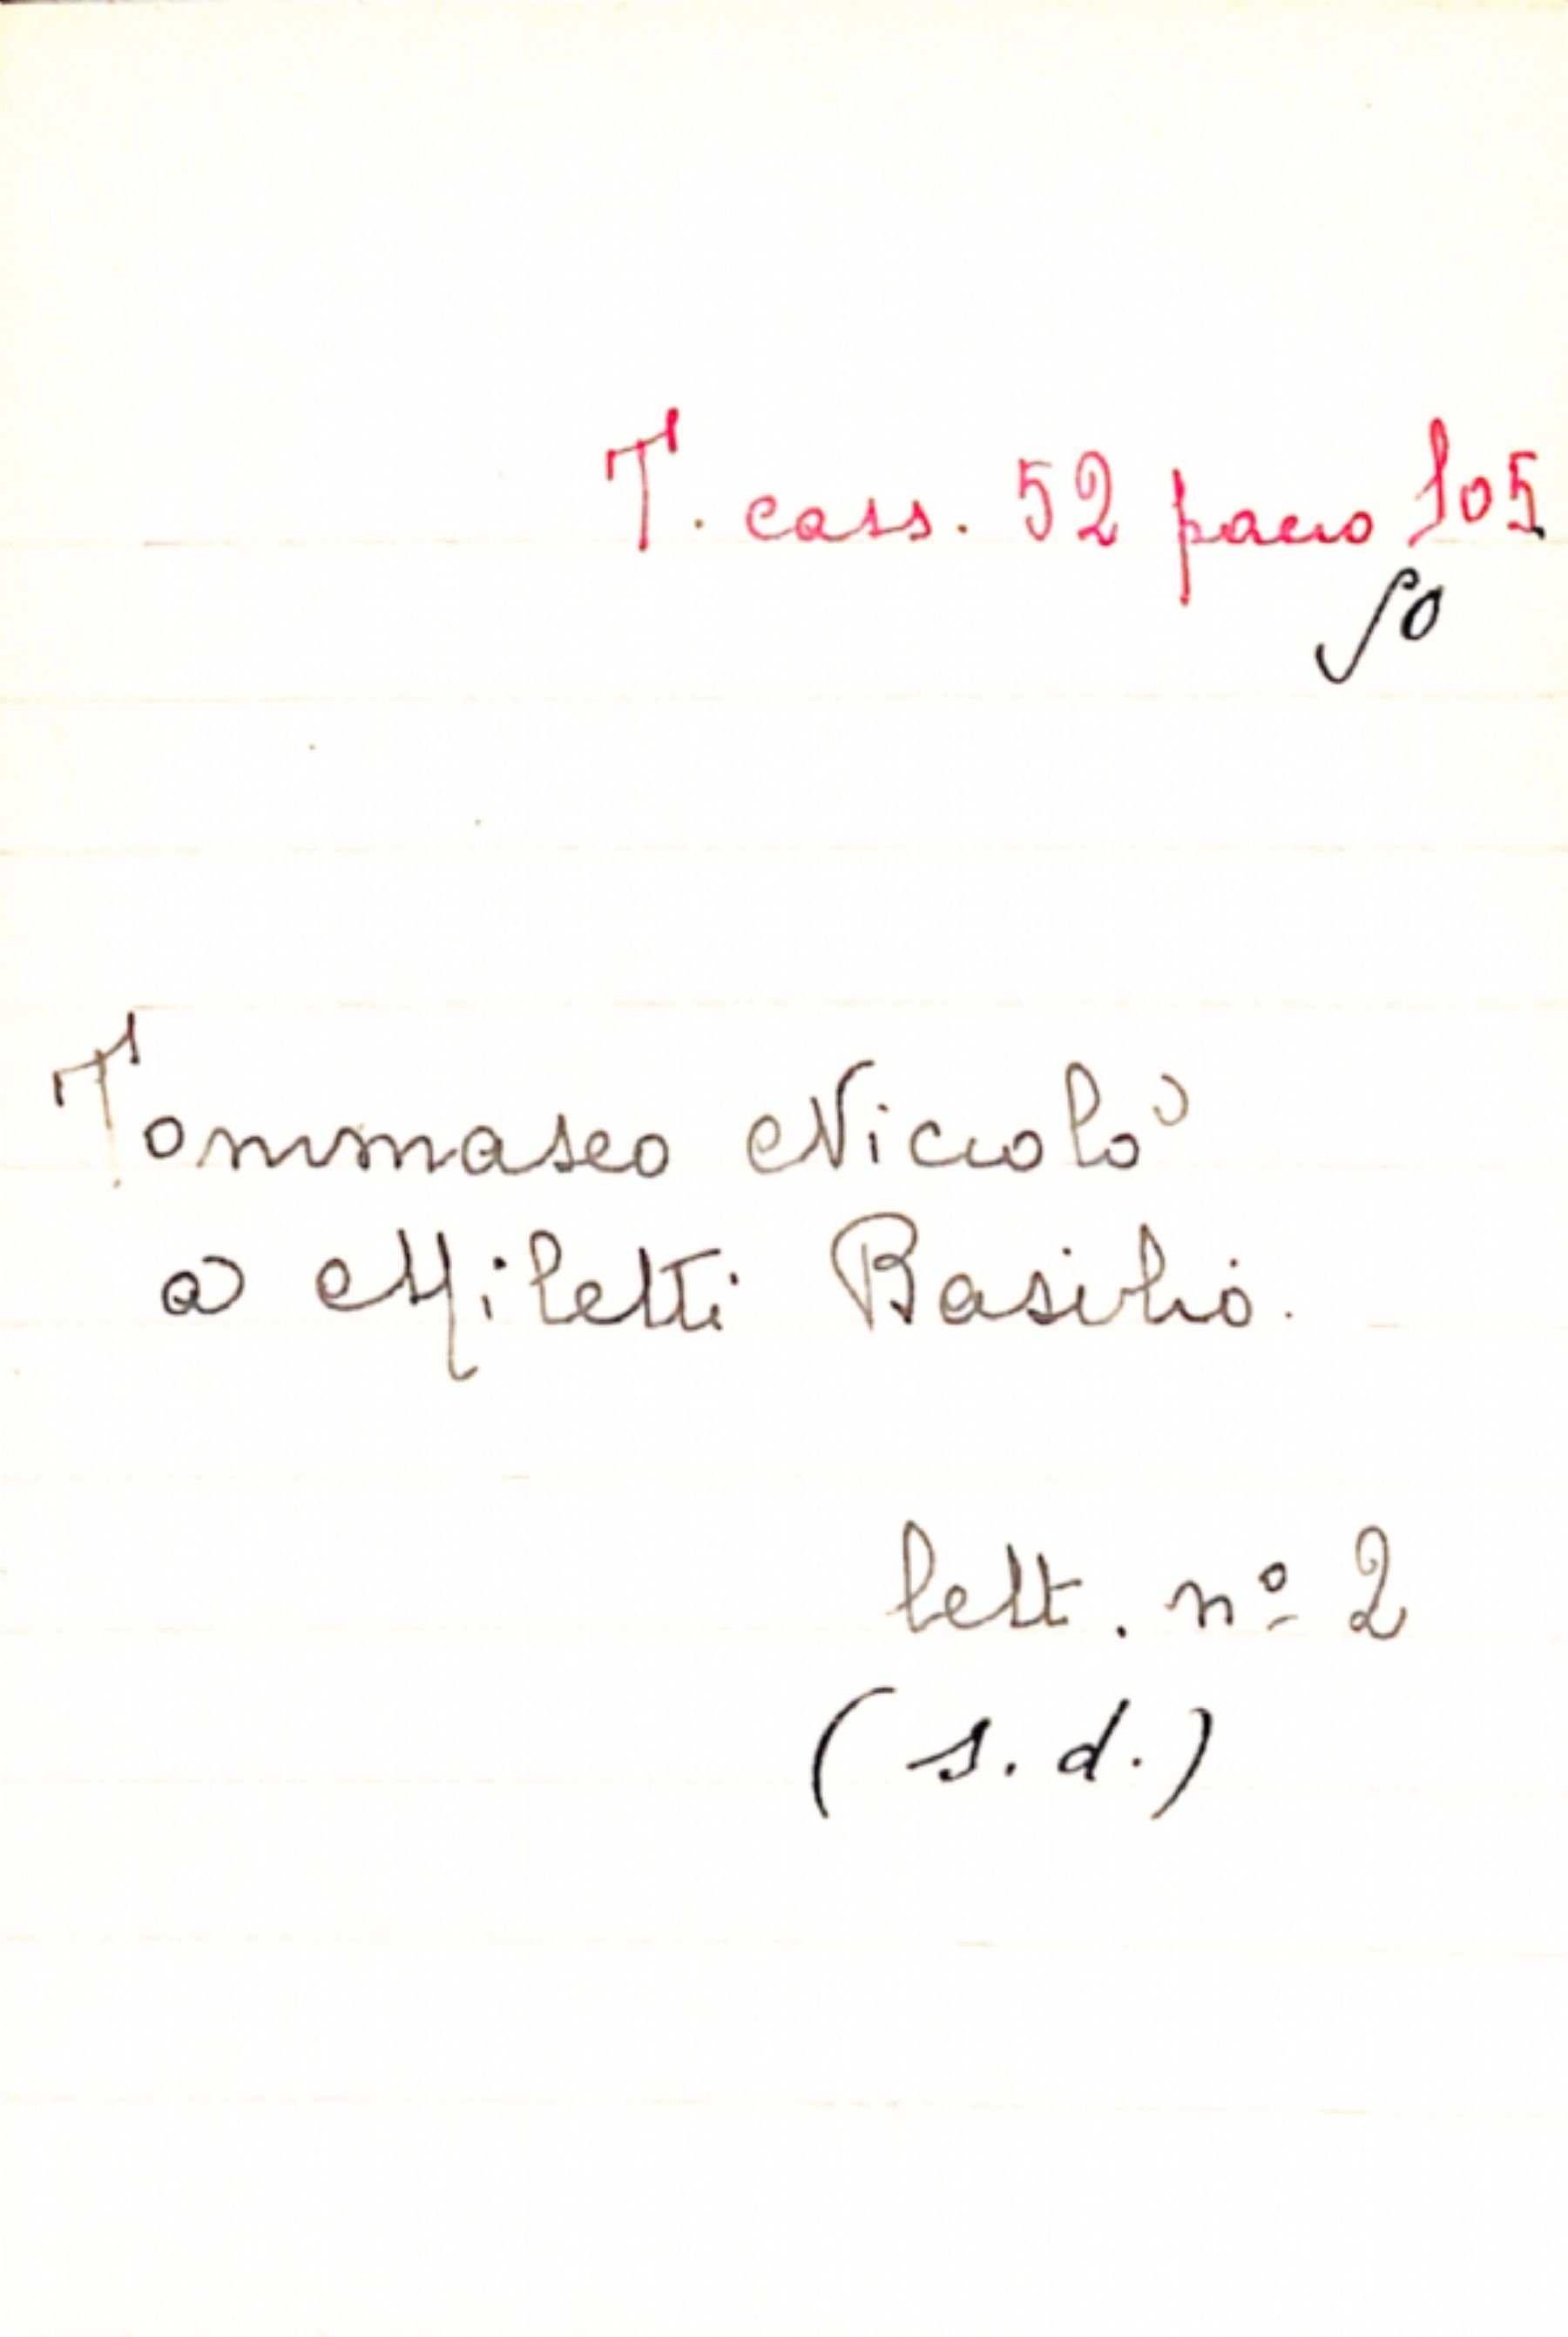 T. cass. 52 pacco 105
50
Tommaseo Niccolò
a Miletti Basilio.
lett. nº 2
(s. d.)